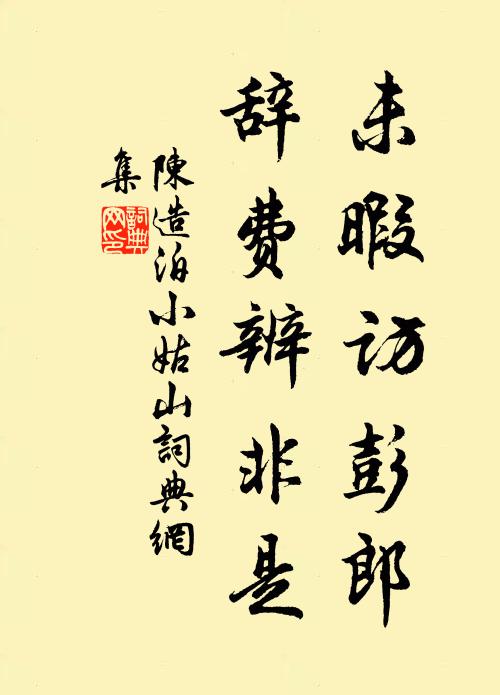 未暇访彭郎
辞费辨非是
陳造泊小姑山詞典網
集
詞典網印